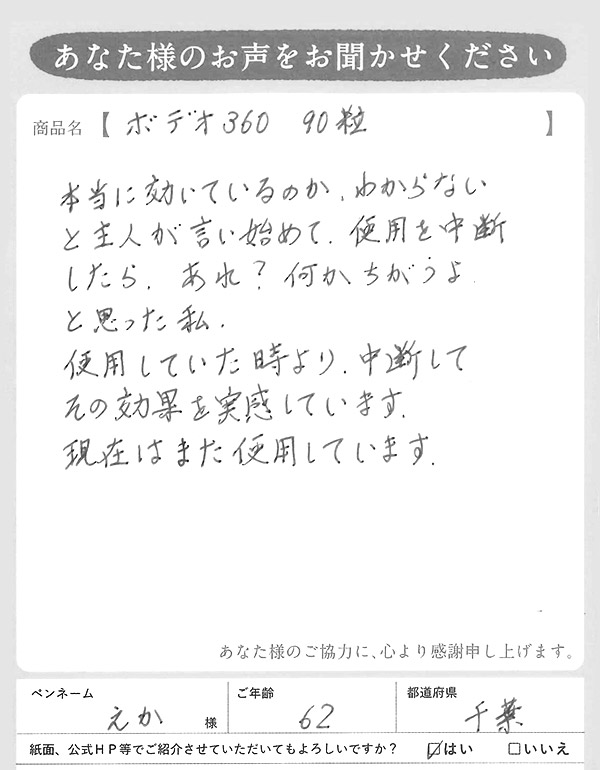 あなた様のお声をお聞かせください
商品名【 ボデオ360 90粒 】
本当に効いているのか、わからない
と主人が言い始めて、使用を中断
したら、あれ？何かちがうよ
と思った私。
使用していた時より、中断して
その効果を実感しています。
現在はまた使用しています。
あなた様のご協力に、心より感謝申し上げます。
ペンネーム ご年齢 都道府県
えか 様 62 千葉
紙面、公式HP等でご紹介させていただいてもよろしいですか？ ☑はい □いいえ